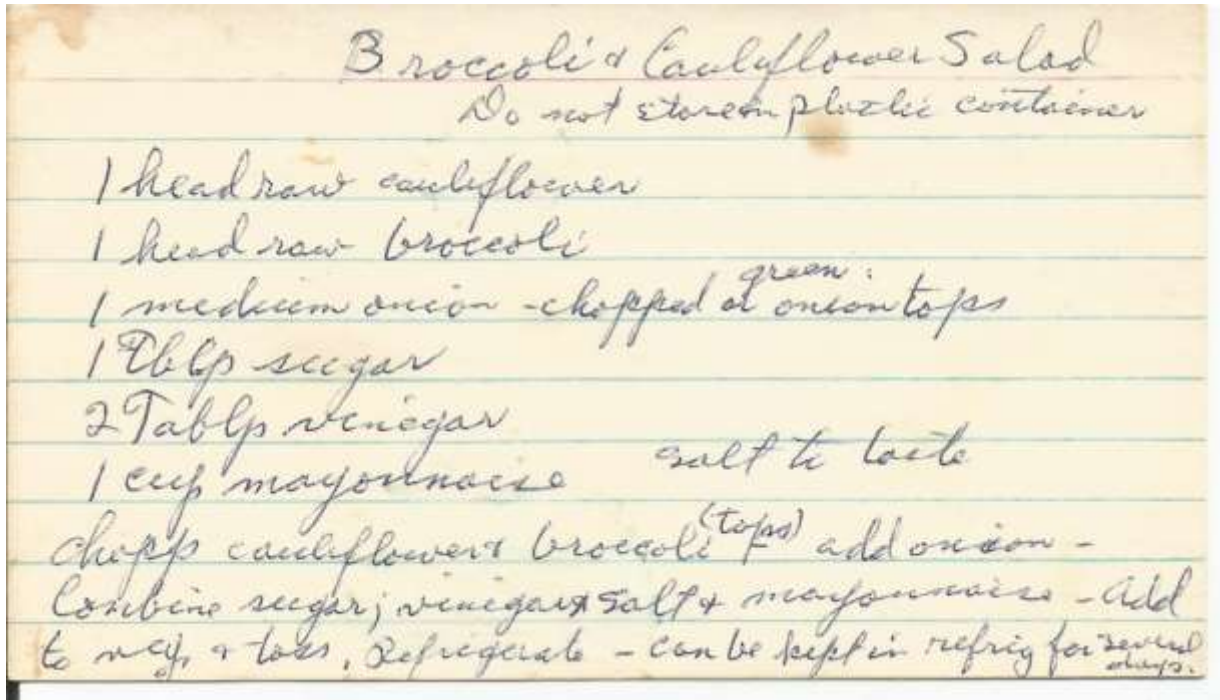 Broccoli & Cauliflower Salad
Do not store in plastic container
1 head raw cauliflower
1 head raw broccoli
1 medium onion - chopped or green onion tops
1 Tblp sugar
2 Tablp vinegar
1 cup mayonnaise salt to taste
chopp cauliflower & broccoli (tops) add onion -
Conbine sugar; vinegar & salt & mayonnaise - add
to veg. & toss. Refrigerate - can be kept in refrig for several days.